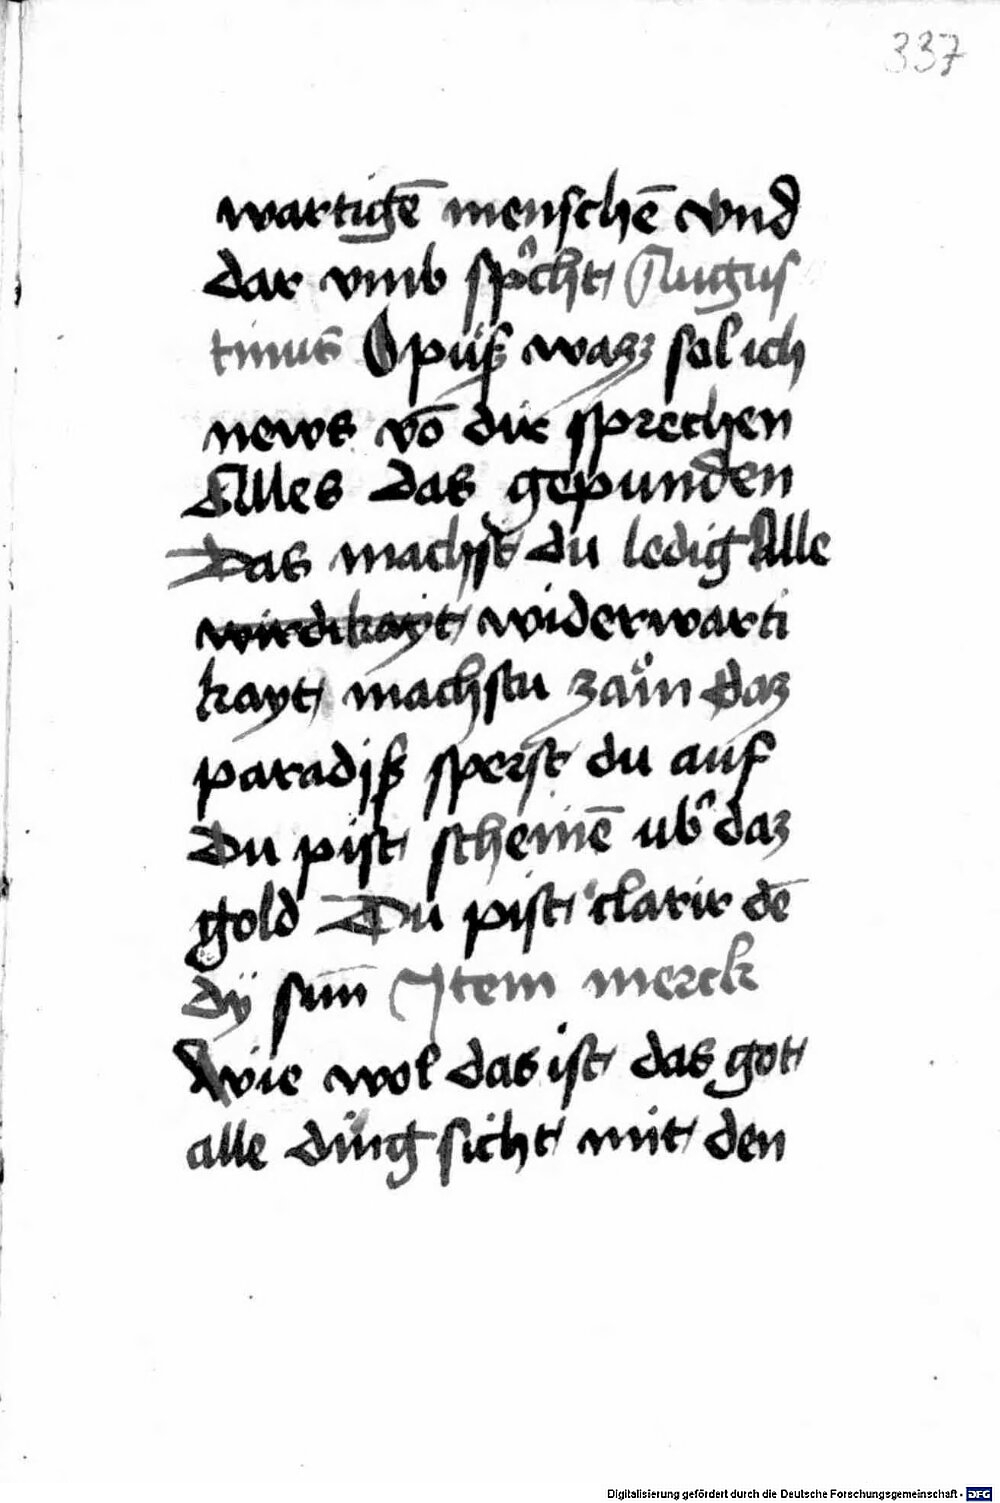 337
wartigē menschē vnd
dar vmb sp̊cht Augus
tinus O püß wazz sol ich
news vō dir sprechen
Alles das gepunden
Das machst du ledig Alle
wirdikayt widerwarti
kayt machstu zäm daz
paradiß sperst du auf
Du pist scheinē ub̾ daz
gold Du pist clarir dē
dÿ sun̄ Item merck
Wie wol das ist das got
alle ding sicht mit den
Digitalisierung gefördert durch die Deutsche Forschungsgemeinschaft - DFG